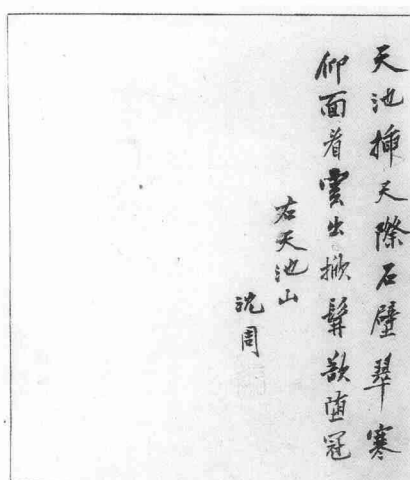 天池揷天際石壁翠寒
仰面看雲出掀髯欹堕冠
右天池山
沈周